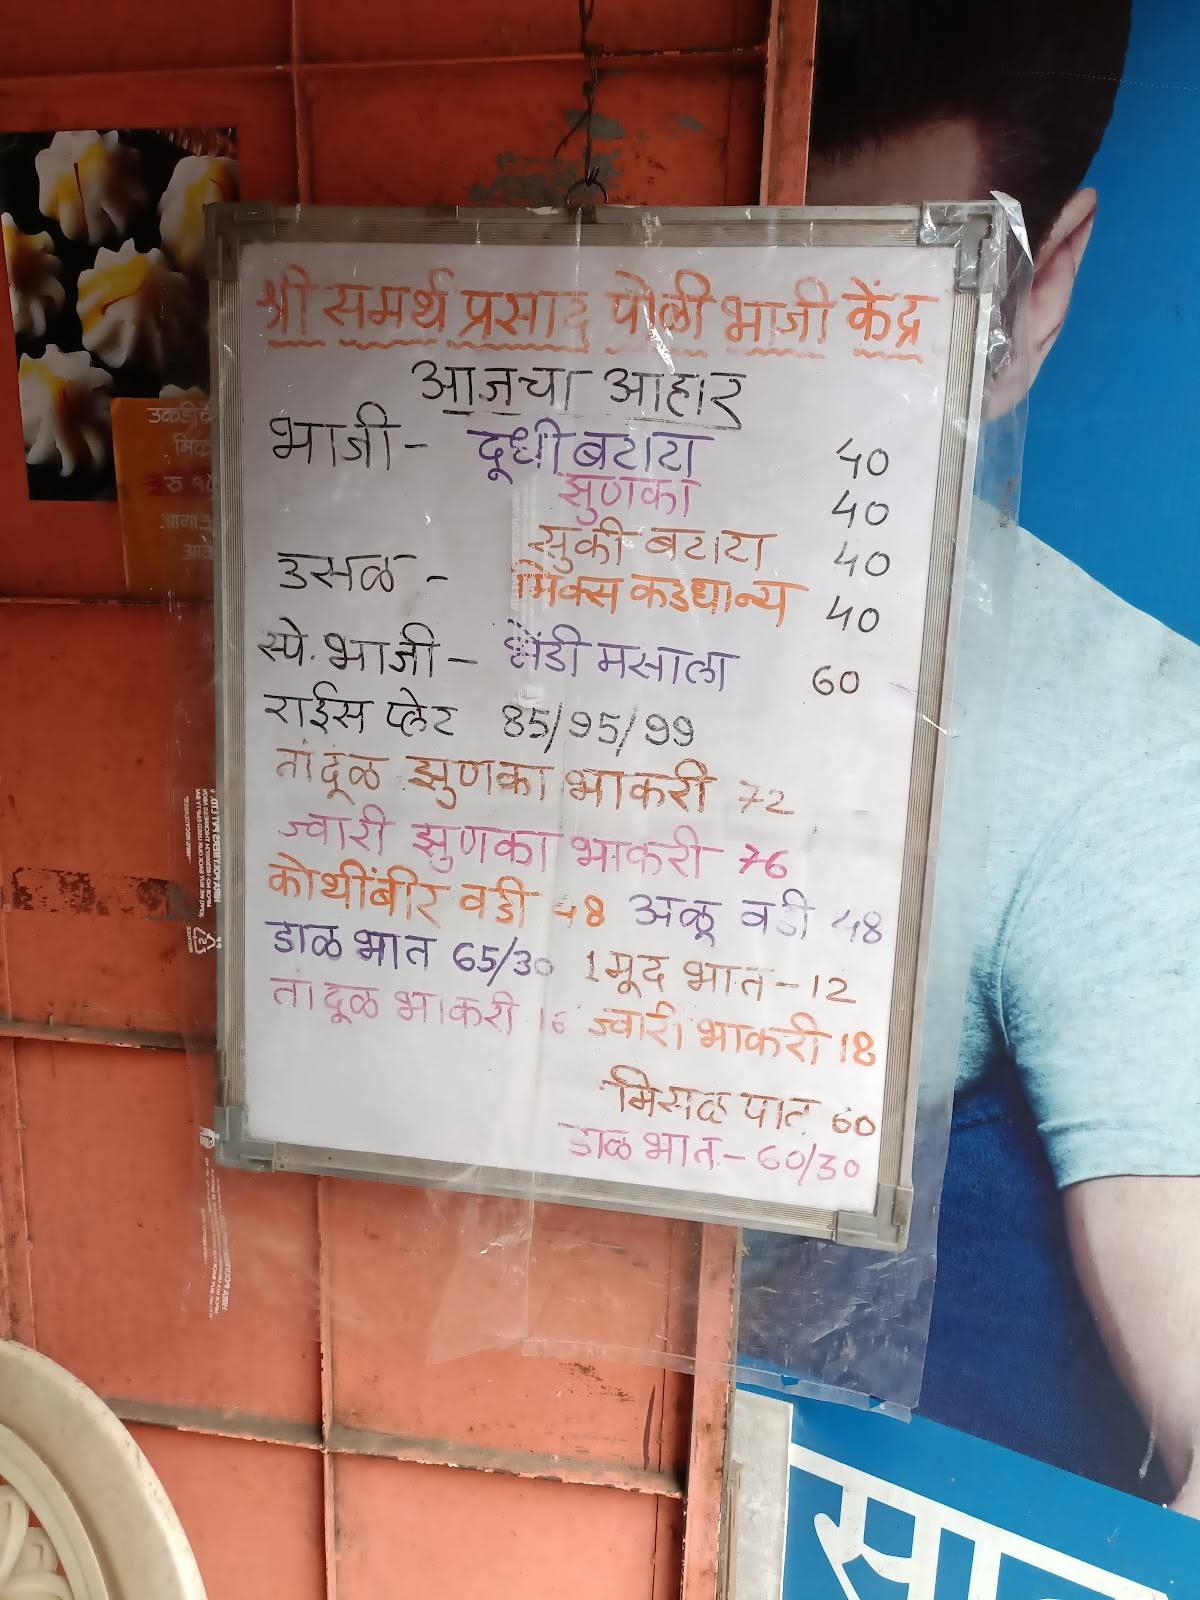 श्री समर्थ प्रसाद पोळी भाजी केंद्र
आजचा आहार
भाजी - दूधी बटाटा 40
झुणका 40
सुकी बटाटा 40
उसळ - मिक्स कडधान्य 40
स्पे. भाजी - भेंडी मसाला 60
राईस प्लेट 85/95/99
तांदूळ झुणका भाकरी 72
ज्वारी झुणका भाकरी 76
कोथींबीर वडी 48 अळू वडी 48
डाळ भात 65/30 1 मूद भात - 12
तांदूळ भाकरी 16 ज्वारी भाकरी 18
मिसळ पाव 60
डाळ भात - 60/30